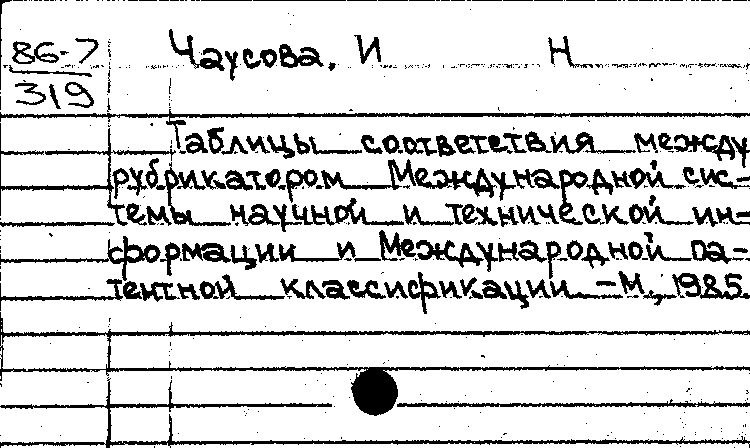 86-7
319
Чаусова, И Н
Таблицы соответствия между
рубрикатором Международной сис-
темы научной и технической ин-
формации и Международной па-
тентной классификации -М., 1985